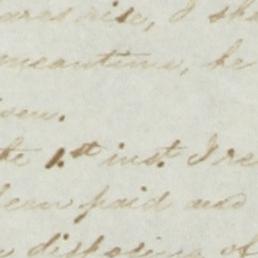 rise, I sh
meantime, he
the 1st inst. I re
been paid and
disposing of